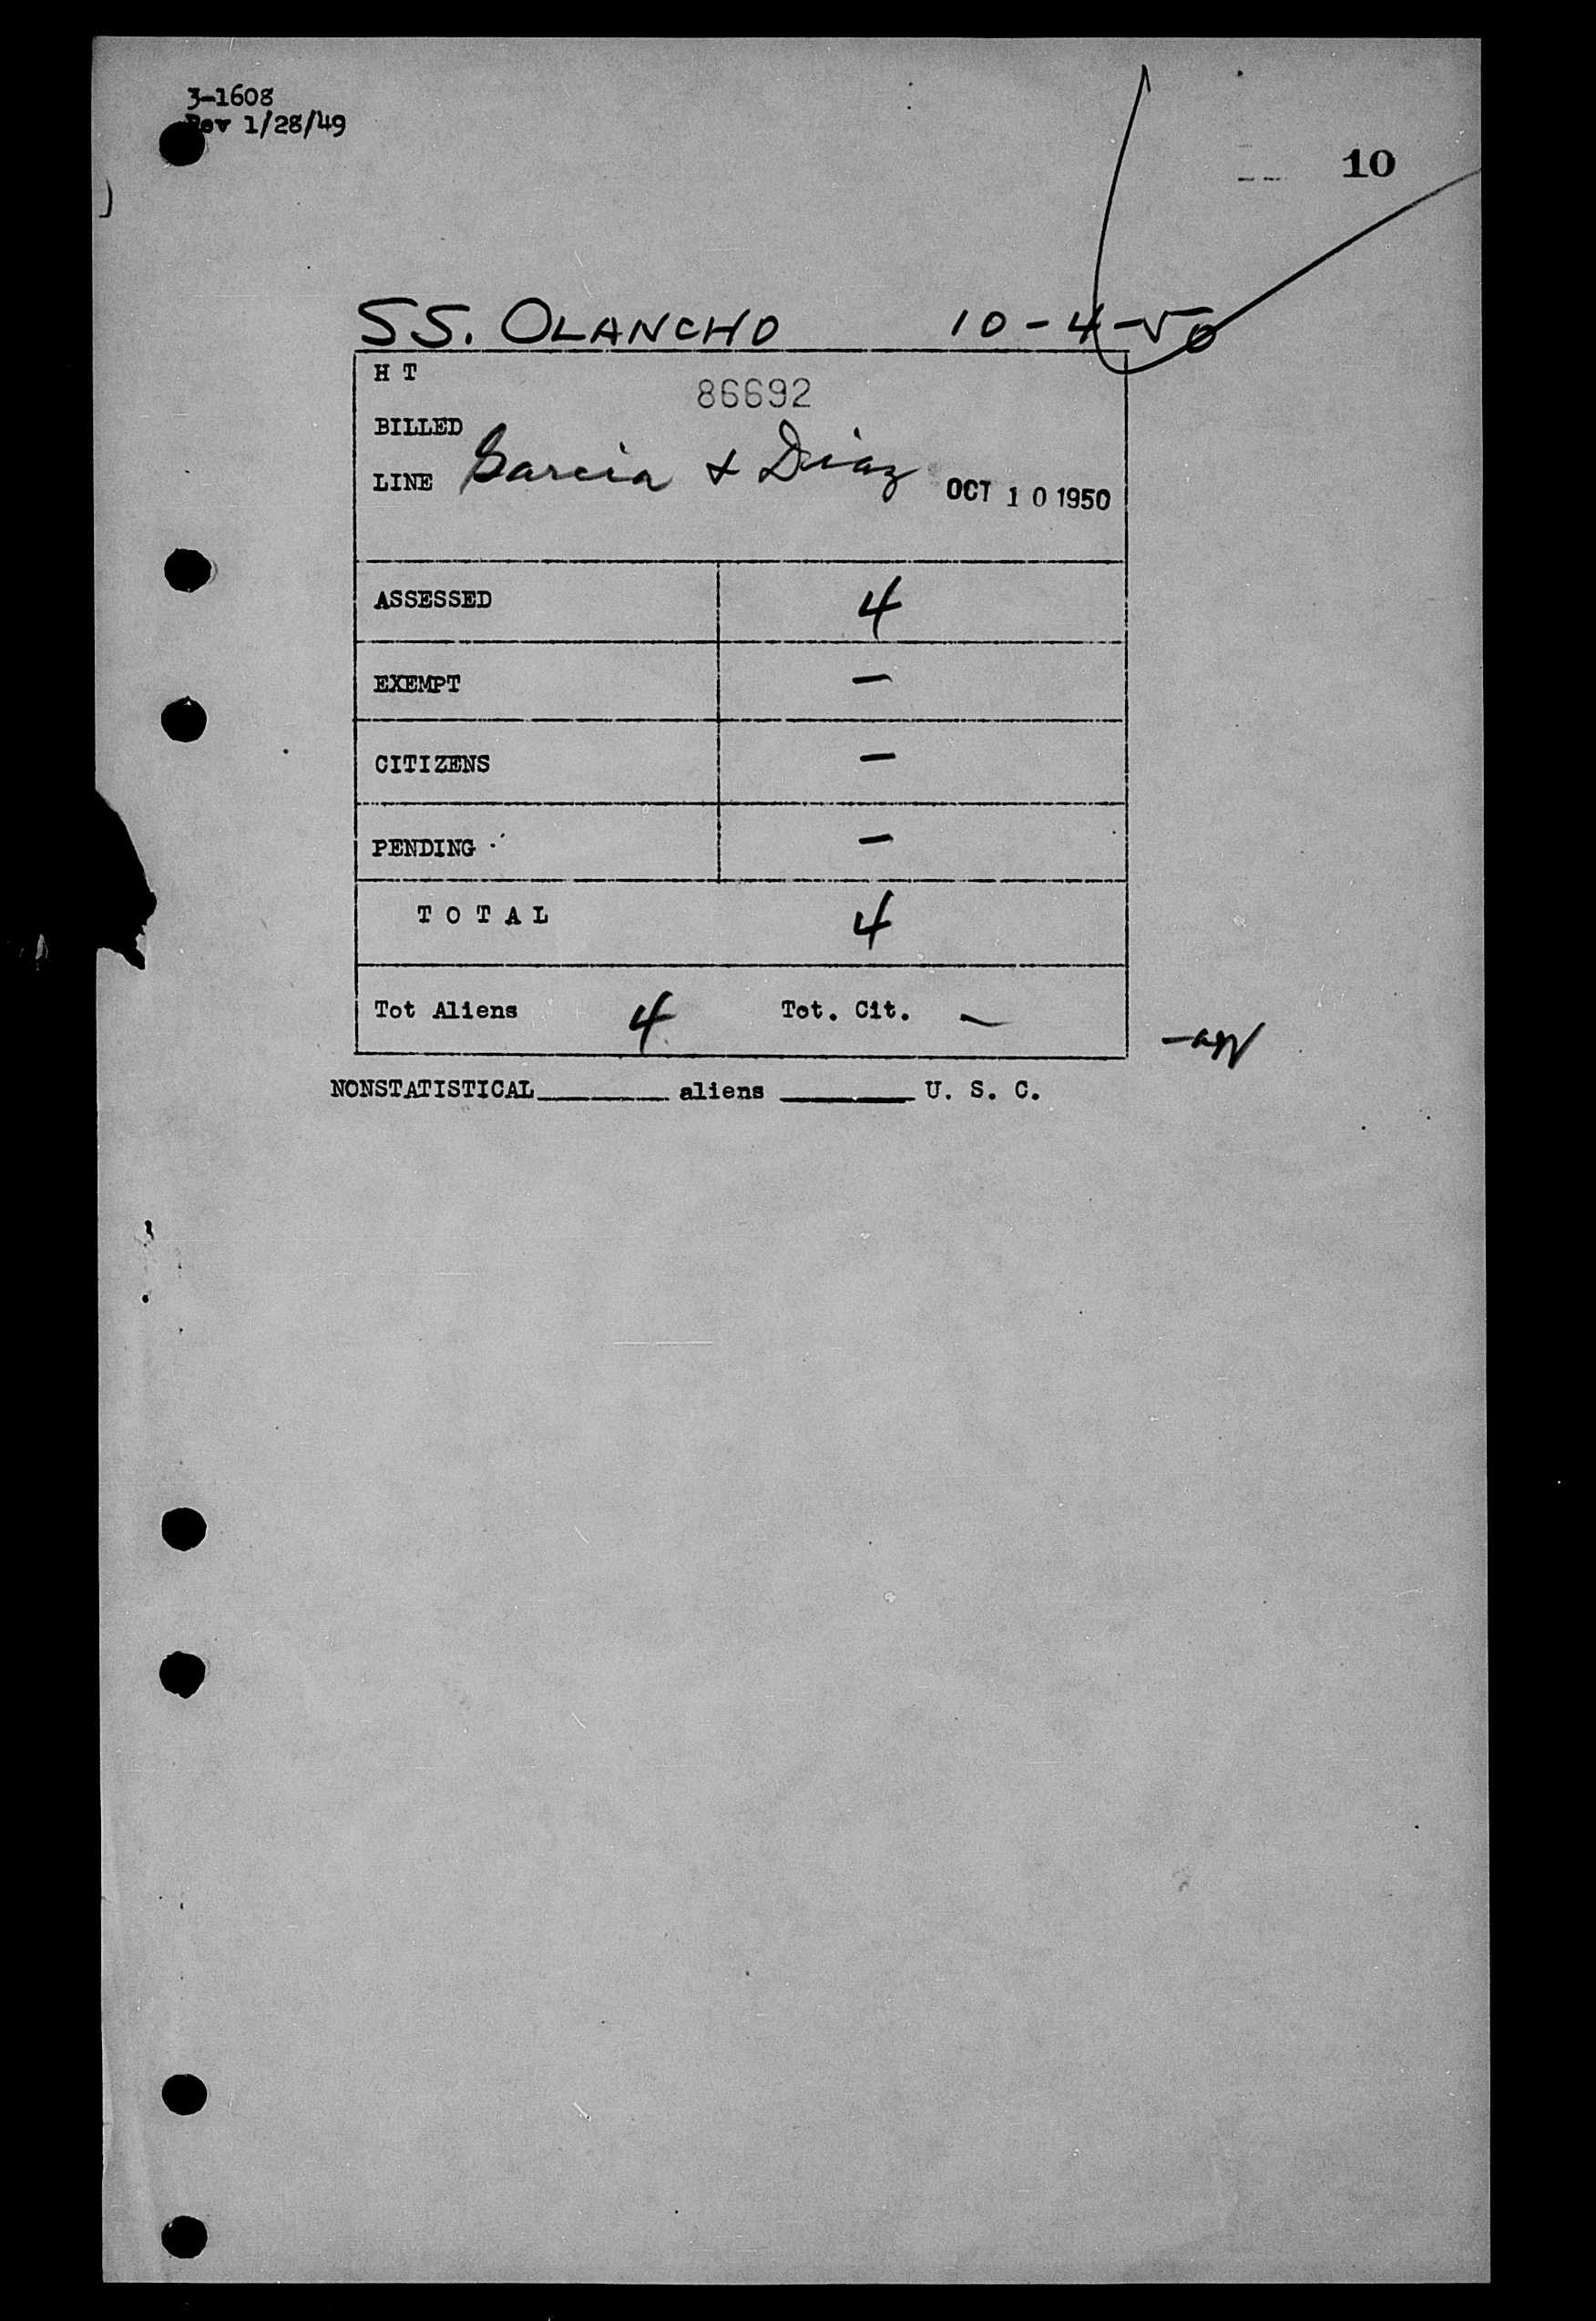 3-1608
Rev 1/28/49
10
SS. OLANCHO 10-4-50
H T
86692
BILLED
LINE Garcia & Diaz OCT 10 1950
ASSESSED 4
EXEMPT —
CITIZENS —
PENDING —
TOTAL 4
Tot Aliens 4 Tot. Cit. —
NONSTATISTICAL______ aliens ______ U. S. C.